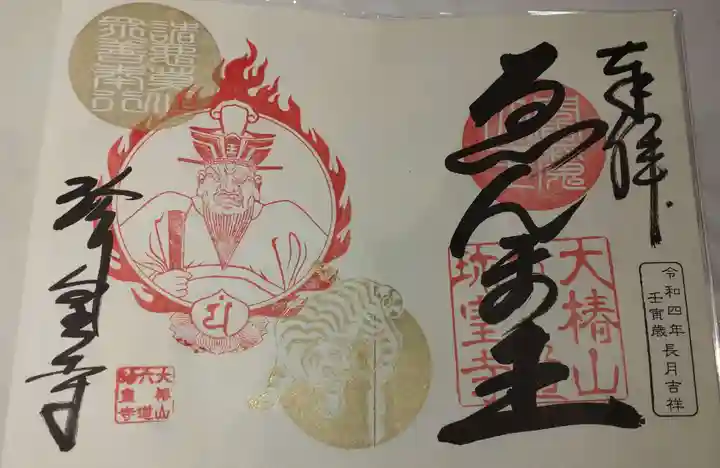 奉拝
ゑんま王
大椿山
六道
珍皇寺
令和四年長月吉祥
壬寅歳
王
諸悪莫作
衆善奉行
珍皇寺
大椿山
六道
珍皇寺